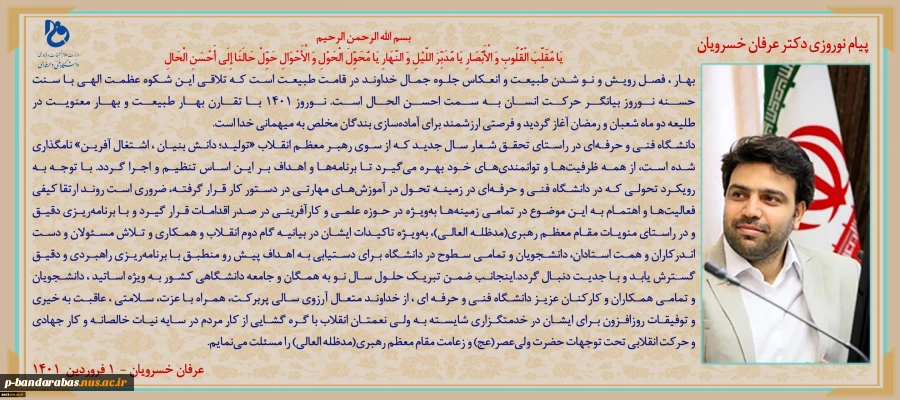 پیام نوروزی دکتر عرفان خسرویان
بسم الله الرحمن الرحیم
یَا مُقَلِّبَ الْقُلُوبِ وَ الْأَبْصَارِ یَا مُدَبِّرَ اللَّیْلِ وَ النَّهَارِ یَا مُحَوِّلَ الْحَوْلِ وَ الْأَحْوَالِ حَوِّلْ حَالَنَا إِلَى أَحْسَنِ الْحَالِ
بهار ، فصل رویش و نو شدن طبیعت و انعکاس جلوه جمال خداوند در قامت طبیعت است که تلاقی این شکوه عظمت الهی با سنت
حسنه نوروز بیانگر حرکت انسان به سمت احسن الحال است. نوروز ۱۴۰۱ با تقارن بهار طبیعت و بهار معنویت در
طلیعه دو ماه شعبان و رمضان آغاز گردید و فرصتی ارزشمند برای آماده‌سازی بندگان مخلص به میهمانی خدا است.
دانشگاه فنی و حرفه‌ای در راستای تحقق شعار سال جدید که از سوی رهبر معظم انقلاب «تولید؛ دانش بنیان ، اشتغال آفرین» نامگذاری
شده است، از همه ظرفیت‌ها و توانمندی‌های خود بهره می‌گیرد تا برنامه‌ها و اهداف بر این اساس تنظیم و اجرا گردد. با توجه به
رویکرد تحولی که در دانشگاه فنی و حرفه‌ای در زمینه تحول در آموزش‌های مهارتی در دستور کار قرار گرفته، ضروری است روند ارتقا کیفی
فعالیت‌ها و اهتمام به این موضوع در تمامی زمینه‌ها به‌ویژه در حوزه علمی و کارآفرینی در صدر اقدامات قرار گیرد و با برنامه‌ریزی دقیق
و در راستای منویات مقام معظم رهبری(مدظله العالی)، به‌ویژه تاکیدات ایشان در بیانیه گام دوم انقلاب و همکاری و تلاش مسئولان و دست
اندرکاران و همت استادان، دانشجویان و تمامی سطوح در دانشگاه برای دستیابی به اهداف پیش رو منطبق با برنامه‌ریزی راهبردی و دقیق
گسترش یابد و با جدیت دنبال گردد.اینجانب ضمن تبریک حلول سال نو به همگان و جامعه دانشگاهی کشور به ویژه اساتید ، دانشجویان
و تمامی همکاران و کارکنان عزیز دانشگاه فنی و حرفه ای ، از خداوند متعال آرزوی سالی پربرکت، همراه با عزت، سلامتی ، عاقبت به خیری
و توفیقات روزافزون برای ایشان در خدمتگزاری شایسته به ولی نعمتان انقلاب با گره گشایی از کار مردم در سایه نیات خالصانه و کار جهادی
و حرکت انقلابی تحت توجهات حضرت ولی‌عصر(عج) و زعامت مقام معظم رهبری(مدظله العالی) را مسئلت می‌نمایم.
عرفان خسرویان – ۱ فروردین ۱۴۰۱
p-bandarabas.nus.ac.ir